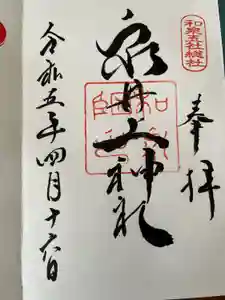 和泉五社總社
奉拝
泉井上神社
令和五年四月十六日